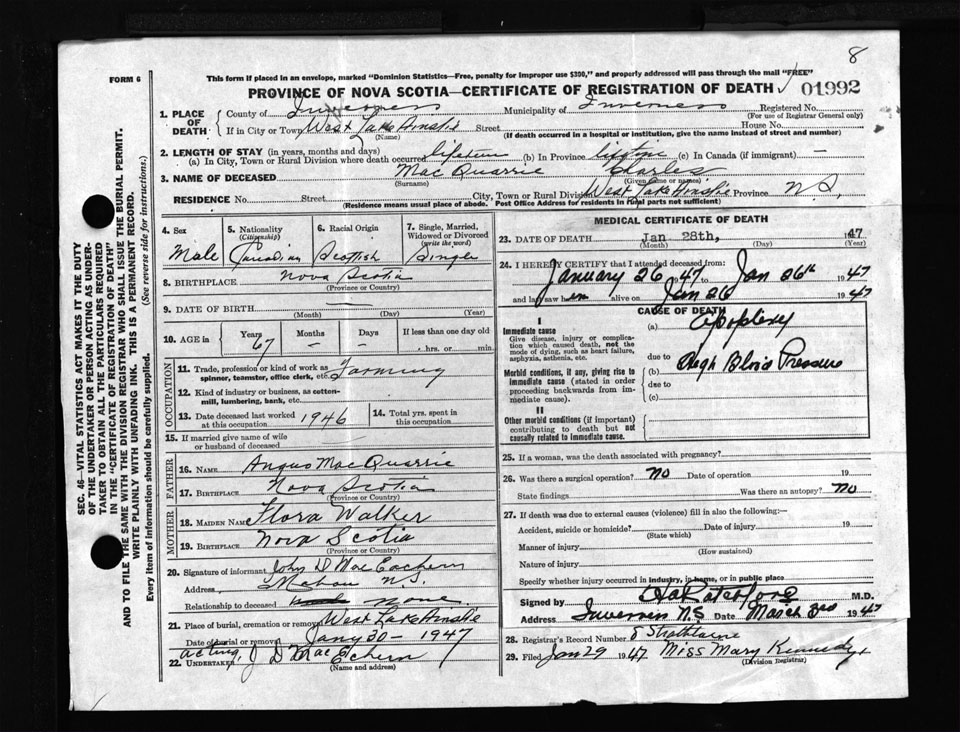 8
FORM 6
This form if placed in an envelope, marked "Dominion Statistics—Free, penalty for improper use $300," and properly addressed will pass through the mail "FREE"
PROVINCE OF NOVA SCOTIA—CERTIFICATE OF REGISTRATION OF DEATH 01992
SEC. 46—VITAL STATISTICS ACT MAKES IT THE DUTY
OF THE UNDERTAKER OR PERSON ACTING AS UNDER-
TAKER TO OBTAIN ALL THE PARTICULARS REQUIRED
IN THE "CERTIFICATE OF REGISTRATION OF DEATH"
AND TO FILE THE SAME WITH THE DIVISION REGISTRAR WHO SHALL ISSUE THE BURIAL PERMIT.
WRITE PLAINLY WITH UNFADING INK. THIS IS A PERMANENT RECORD.
Every item of information should be carefully supplied. (See reverse side for instructions.)
1. PLACE OF DEATH County of Inverness Municipality of Inverness Registered No.
(For use of Registrar General only)
If in City or Town West Lake Ainslie Street House No.
(Name) (If death occurred in a hospital or institution, give the name instead of street and number)
2. LENGTH OF STAY (in years, months and days)
(a) In City, Town or Rural Division where death occurred lifetime (b) In Province lifetime (c) In Canada (if immigrant) —
3. NAME OF DECEASED Mac Quarrie Charles
(Surname) (Given name or names)
RESIDENCE No. Street City, Town or Rural Division West Lake Ainslie Province N.S.
(Residence means usual place of abode. Post Office Address for residents in rural parts not sufficient)
4. Sex 5. Nationality (Citizenship) 6. Racial Origin 7. Single, Married, Widowed or Divorced (write the word)
Male Canadian Scottish Single
8. BIRTHPLACE Nova Scotia
(Province or Country)
9. DATE OF BIRTH —
(Month) (Day) (Year)
10. AGE in Years Months Days If less than one day old
67 — — hrs. or min.
OCCUPATION
11. Trade, profession or kind of work as spinner, teamster, office clerk, etc. Farming
12. Kind of industry or business, as cotten-mill, lumbering, bank, etc.
13. Date deceased last worked at this occupation 1946 14. Total yrs. spent in this occupation
15. If married give name of wife or husband of deceased
FATHER
16. NAME Angus Mac Quarrie
17. BIRTHPLACE Nova Scotia
(Province or Country)
MOTHER
18. MAIDEN NAME Flora Walker
19. BIRTHPLACE Nova Scotia
(Province or Country)
20. Signature of informant John D Mac Eachern
Address Mabou N.S.
Relationship to deceased none
21. Place of burial, cremation or removal West Lake Ainslie
Date of burial or removal Jany 30 - 1947
22. UNDERTAKER acting, J D MacEchern
(Name and address)
MEDICAL CERTIFICATE OF DEATH
23. DATE OF DEATH Jan 28th, 1947
(Month) (Day) (Year)
24. I HEREBY CERTIFY that I attended deceased from:
January 26 1947 Jan 26th 1947
and last saw him alive on Jan 26 1947
CAUSE OF DEATH
I
Immediate cause
Give disease, injury or complication which caused death, not the mode of dying, such as heart failure, asphyxia, asthenia, etc.
(a) Apoplexy
due to
Morbid conditions, if any, giving rise to immediate cause (stated in order proceeding backwards from immediate cause).
(b) High Blood Pressure
due to
(c)
II
Other morbid conditions (if important) contributing to death but not causally related to immediate cause.
25. If a woman, was the death associated with pregnancy?
26. Was there a surgical operation? No Date of operation 19
State findings Was there an autopsy? No
27. If death was due to external causes (violence) fill in also the following:—
Accident, suicide or homicide? Date of injury 19
(State which)
Manner of injury
(How sustained)
Nature of injury
Specify whether injury occurred in industry, in home, or in public place
Signed by M.D.
Address Inverness N.S Date March 3rd 1947
28. Registrar's Record Number 8 Strathlorne
29. Filed Jan 29 1947 Miss Mary Kennedy
(Division Registrar)